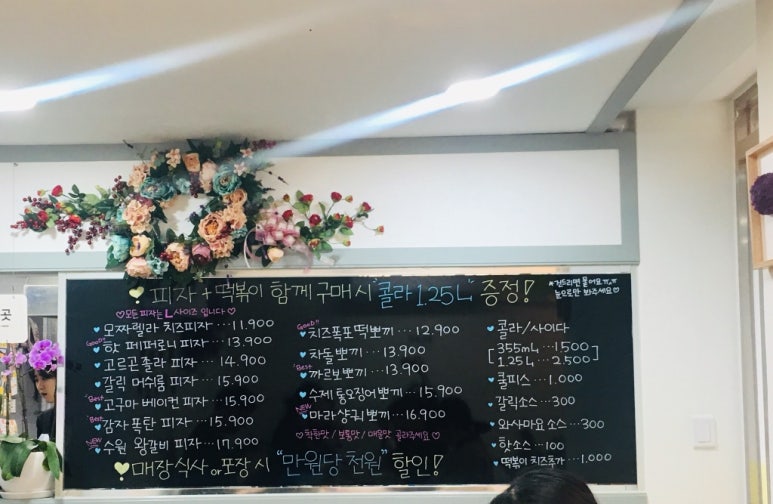 피자 + 떡볶이 함께 구매 시 "콜라 1.25L" 증정!
*건드리면 물어요ㅠ,ㅠ
눈으로만 봐주세요♡
♡모든 피자는 L 사이즈 입니다♡
모짜렐라 치즈피자 ··· 11.900
Good" 핫 페퍼로니 피자 ··· 13.900
고르곤졸라 피자 ··· 14.900
갈릭 머쉬룸 피자 ··· 15.900
"Best 고구마 베이컨 피자 ··· 15.900
"Best 감자 폭탄 피자 ··· 15.900
NEW 수원 왕갈비 피자 ··· 17.900
Good" 치즈폭포떡뽀끼 ··· 12.900
차돌뽀끼 ··· 13.900
"Best 까르보뽀끼 ··· 13.900
수제 통오징어뽀끼 ··· 15.900
NEW 마라샹궈뽀끼 ··· 16.900
♡착한맛 / 보통맛 / 매운맛 골라주세요♡
콜라/사이다
[355mL ··· 1.500
1.25L ··· 2.500]
쿨피스 ··· 1.000
갈릭소스 ··· 300
와사마요 소스 ··· 300
핫소스 ··· 100
떡볶이 치즈추가 ··· 1.000
매장식사 or 포장 시 "만원당 천원" 할인!
곳